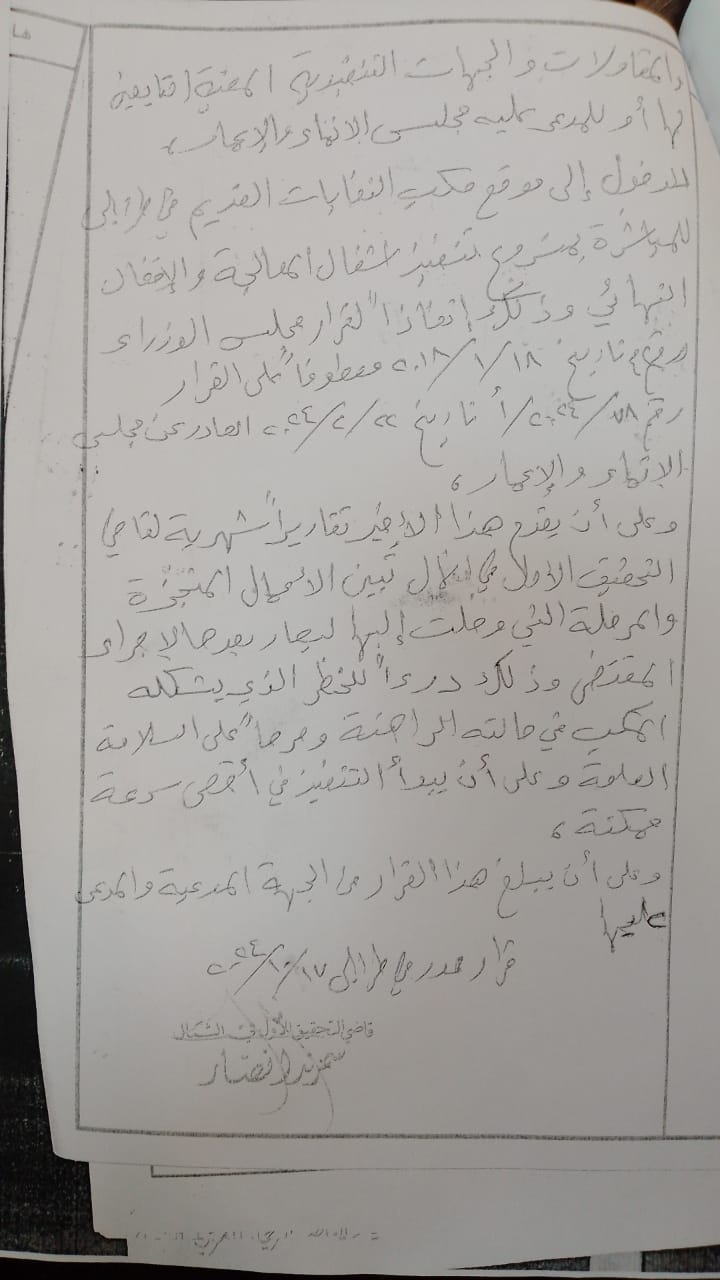 والمقاولات والجهات التنفيذية المعنية التابعة
لها أو للمدعى عليه مجلس الانماء والإعمار،
الدخول إلى موقع مكب النفايات القديم في طرابلس
للمباشرة بمشروع تنفيذ اشغال المعالجة والإقفال
النهائي وذلك إنفاذاً لقرار مجلس الوزراء
رقم ٤ تاريخ ٢٠١٨/١/١٨ معطوفاً على القرار
رقم ٧٨/٢٠٢٤/أ تاريخ ٢٠٢٤/٢/٢٢ الصادر عن مجلس
الإنماء والإعمار،
وعلى أن يقدم هذا الأخير تقاريراً شهرية لقاضي
التحقيق الأول في الشمال تبين الأعمال المنجزة
والمرحلة التي وصلت إليها ليصار بعدها لإجراء
المقتضى وذلك درءاً للخطر الذي يشكله
المكب في حالته الراهنة وحرصاً على السلامة
العامة وعلى أن يبدأ التنفيذ في أقصى سرعة
ممكنة،
وعلى أن يبلغ هذا القرار من الجهة المدعية والمدعى
عليها
قرار صدر في طرابلس ٢٠٢٤/١٠/١٧
قاضي التحقيق الأول في الشمال
سمرندا نصار